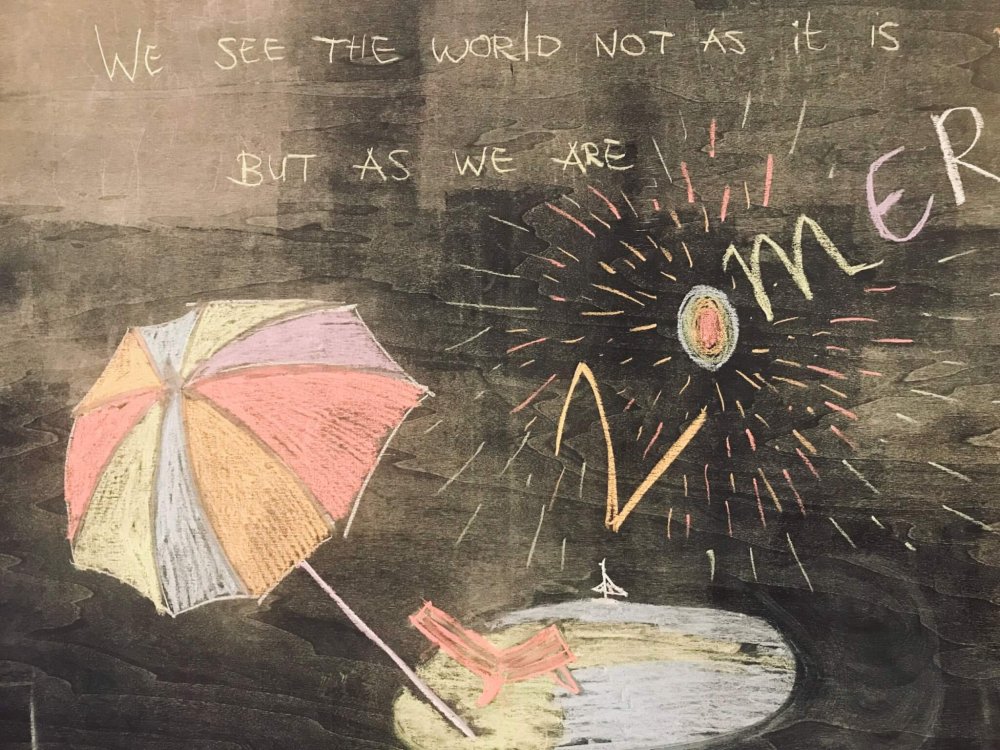 WE SEE THE WORLD NOT AS it IS
BUT AS WE ARE
MER